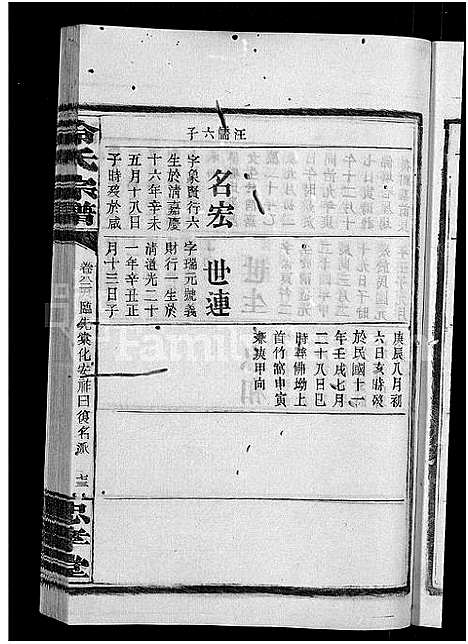 汪六子
名宏
世連
字象賢行六
生於清嘉慶
十六年辛未
五月十八日
子時歿於咸
字瑞元號義
財行一生於
清道光二十
一年辛丑正
月十三日子
庚辰八月初
六日亥時歿
於民國十一
年壬戌七月
二十八日巳
時葬佛坳上
首竹窩申寅
兼庚甲向
余氏宗譜
卷之三 臨先棠化宏祥曰復名派
七三
忠孝堂